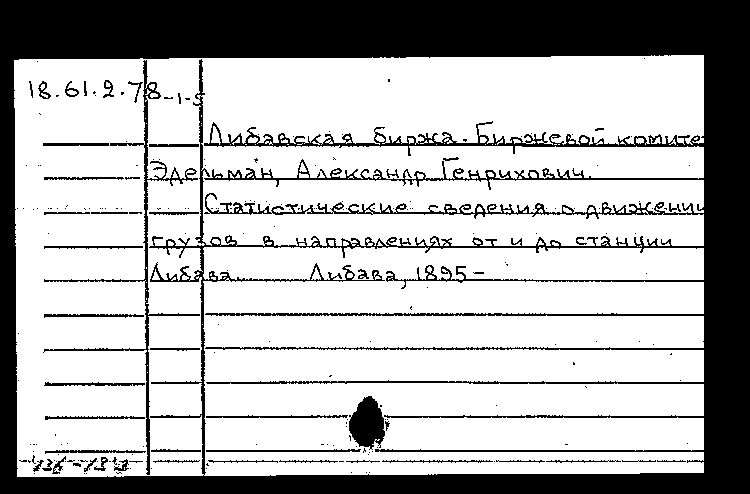 18.61.2.78-1-5
Либавская биржа. Биржевой комите
Эдельман, Александр Генрихович.
Статистические сведения о движении
грузов в направлениях от и до станции
Либава. Либава, 1895-